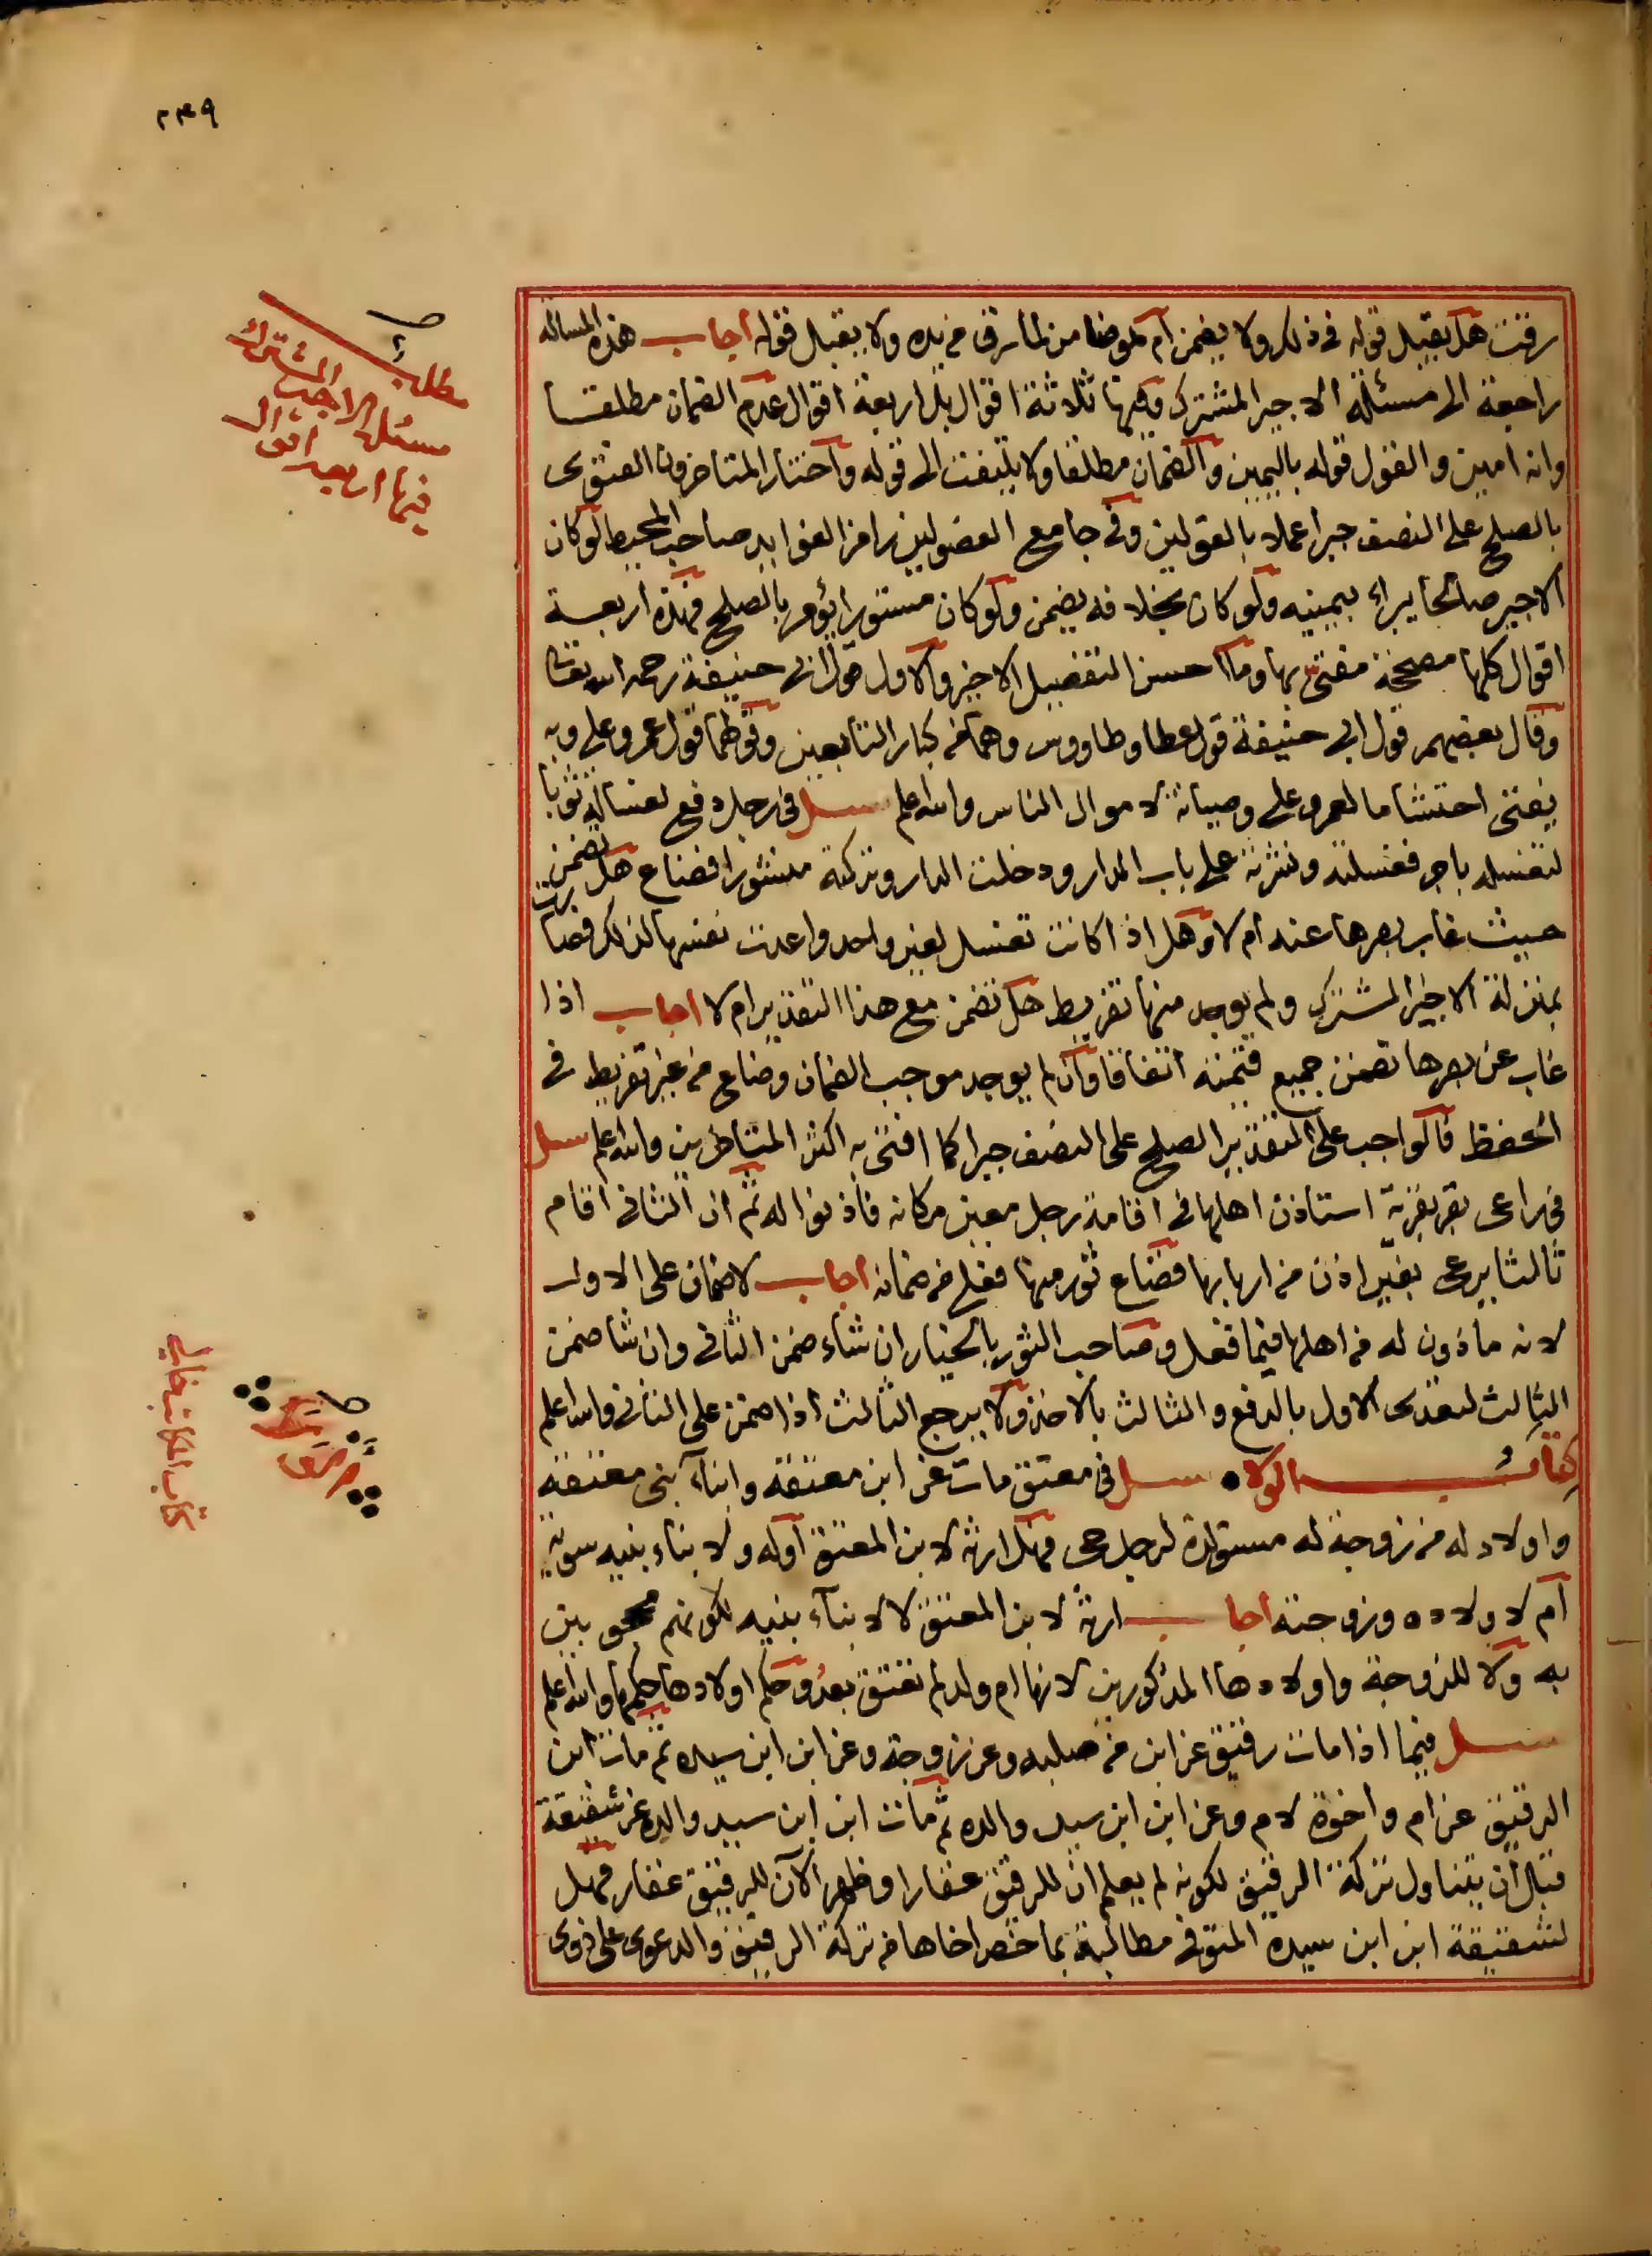 ٢٣٩
رقت هل يقبل قوله فى ذلك ولا يضمن ام هو ضامن لما سرق من يده ولا يقبل قوله اجاب هذه المسالة
راجعة الى مسئلة الاجير المشترك وفيها ثلاثة اقوال بل اربعة اقوال عدم الضمان مطلقا
وانه امين والقول قوله باليمين والضمان مطلقا ولا يلتفت الى قوله واختار المتاخرون الفتوى
بالصلح على النصف جبرا عملا بالقولين وفى جامع الفصولين رامز الفوايد صاحب المحيط لو كان
الاجير صالحا يبراء بيمينه ولو كان بخلافه يضمن ولو كان مستورا يؤمر بالصلح فهذه اربعة
اقوال كلها مصححة مفتى بها وما احسن التفصيل الاخير والاول قول ابى حنيفة رحمه الله تعالى
وقال بعضهم قول ابى حنيفة قول عطا وطاووس وهما من كبار التابعين وقولهما قول عمر وعلى وبه
يفتى احتشاما لعمر وعلى وصيانة لاموال الناس والله اعلم سئل فى رجل دفع لغسالة ثوبا
لتغسله باجر فغسلته ونشرته على باب الدار ودخلت الدار وتركته منشورا فضاع هل تضمن
حيث غاب بصرها عنه ام لا وهل اذا كانت تغسل لغير واحد واعدت نفسها لذلك فصارت
بمنزلة الاجير المشترك ولم يوجد منها تفريط هل تضمن مع هذا التقدير ام لا اجاب اذا
غاب عن بصرها تضمن جميع قيمته اتفاقا وان لم يوجد موجب الضمان وضاع من غير تفريط فى
الحفظ فالواجب على التقدير الصلح على النصف جبرا كما افتى به اكثر المتاخرين والله اعلم سئل
فى راعى بقر قرية استاذن اهلها فى اقامة رجل معين مكانه فاذنوا له ثم ان الثانى اقام
ثالثا يرعى بغير اذن من اربابها فضاع ثور منها فعلى من ضمانه اجاب لا ضمان على الاول
لانه ماذون له من اهلها فيما فعل وصاحب الثور بالخيار ان شاء ضمن الثانى وان شا ضمن
الثالث لتعدى الاول بالدفع والثالث بالاخذ ولا يرجع الثالث اذا ضمن على الثانى والله اعلم
كتاب الولاء سئل فى معتق مات عن ابن معتقه وابناء بنى معتقه
واولاد له من زوجة له مستولدة لرجل حى فهل ارثه لابن المعتق اوله ولابناء بنيه سوية
ام لاولاده وزوجته اجاب ارثه لابن المعتق لا لابناء بنيه لكونهم محجوبين
به ولا للزوجة واولادها المذكورين لانها ام ولد لم تعتق بعد وحكم اولادها حكمها والله اعلم
سئل فيما اذا مات رقيق عن ابن من صلبه وعن زوجة وعن ابن ابن سيده ثم مات ابن
الرقيق عن ام واخوة لام وعن ابن ابن سيد والده ثم مات ابن ابن سيد والده عن شقيقة
قبل ان يتناول تركة الرقيق لكونه لم يعلم ان للرقيق عقارا وظهر الان للرقيق عقار فهل
لشقيقة ابن ابن سيده المتوفى مطالبة بما خص اخاها من تركة الرقيق والدعوى على ذوى
مطلب
مسئلة الاجير المشترك
فيها اربعة اقوال